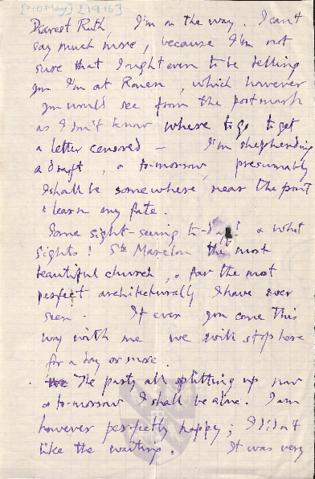 [?10 May] [1916]
Dearest Ruth, I'm on the way. I can't
say much more, because I'm not
sure that I ought even to be telling
you I'm at Rouen, which however
you would see from the postmark
as I don't know where to go to get
a letter censored – I'm shepherding
a draft, & to-morrow, presumably
I shall be somewhere near the front
& learn my fate.
Some sight-seeing to-day! & what
sights! St. Maclou the most
beautiful church, & far the most
perfect architecturally I have ever
seen. If ever you come this
way with me we will stop here
for a day or more.
The party all splitting up now
& to-morrow I shall be alone. I am
however perfectly happy; I didn't
like the waiting. It was very